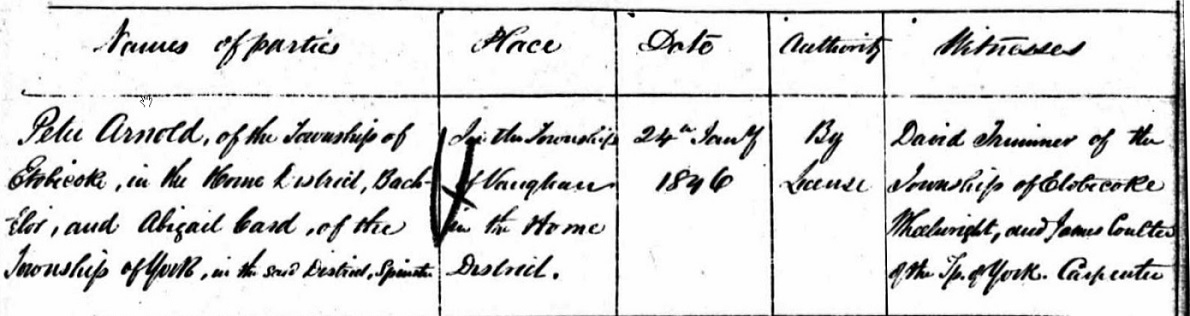 Names of parties
Place
Date
Authority
Witnesses
Peter Arnold, of the Township of
Etobicoke, in the Home District, Bach-
elor, and Abigail Card, of the
Township of York, in the said District, Spinster
In the Township
of Vaughan
in the Home
District.
24th Jany
1846
By
License
David Trimmer of the
Township of Etobicoke
Wheelwright, and James Coulter
of the Tp. of York. Carpenter